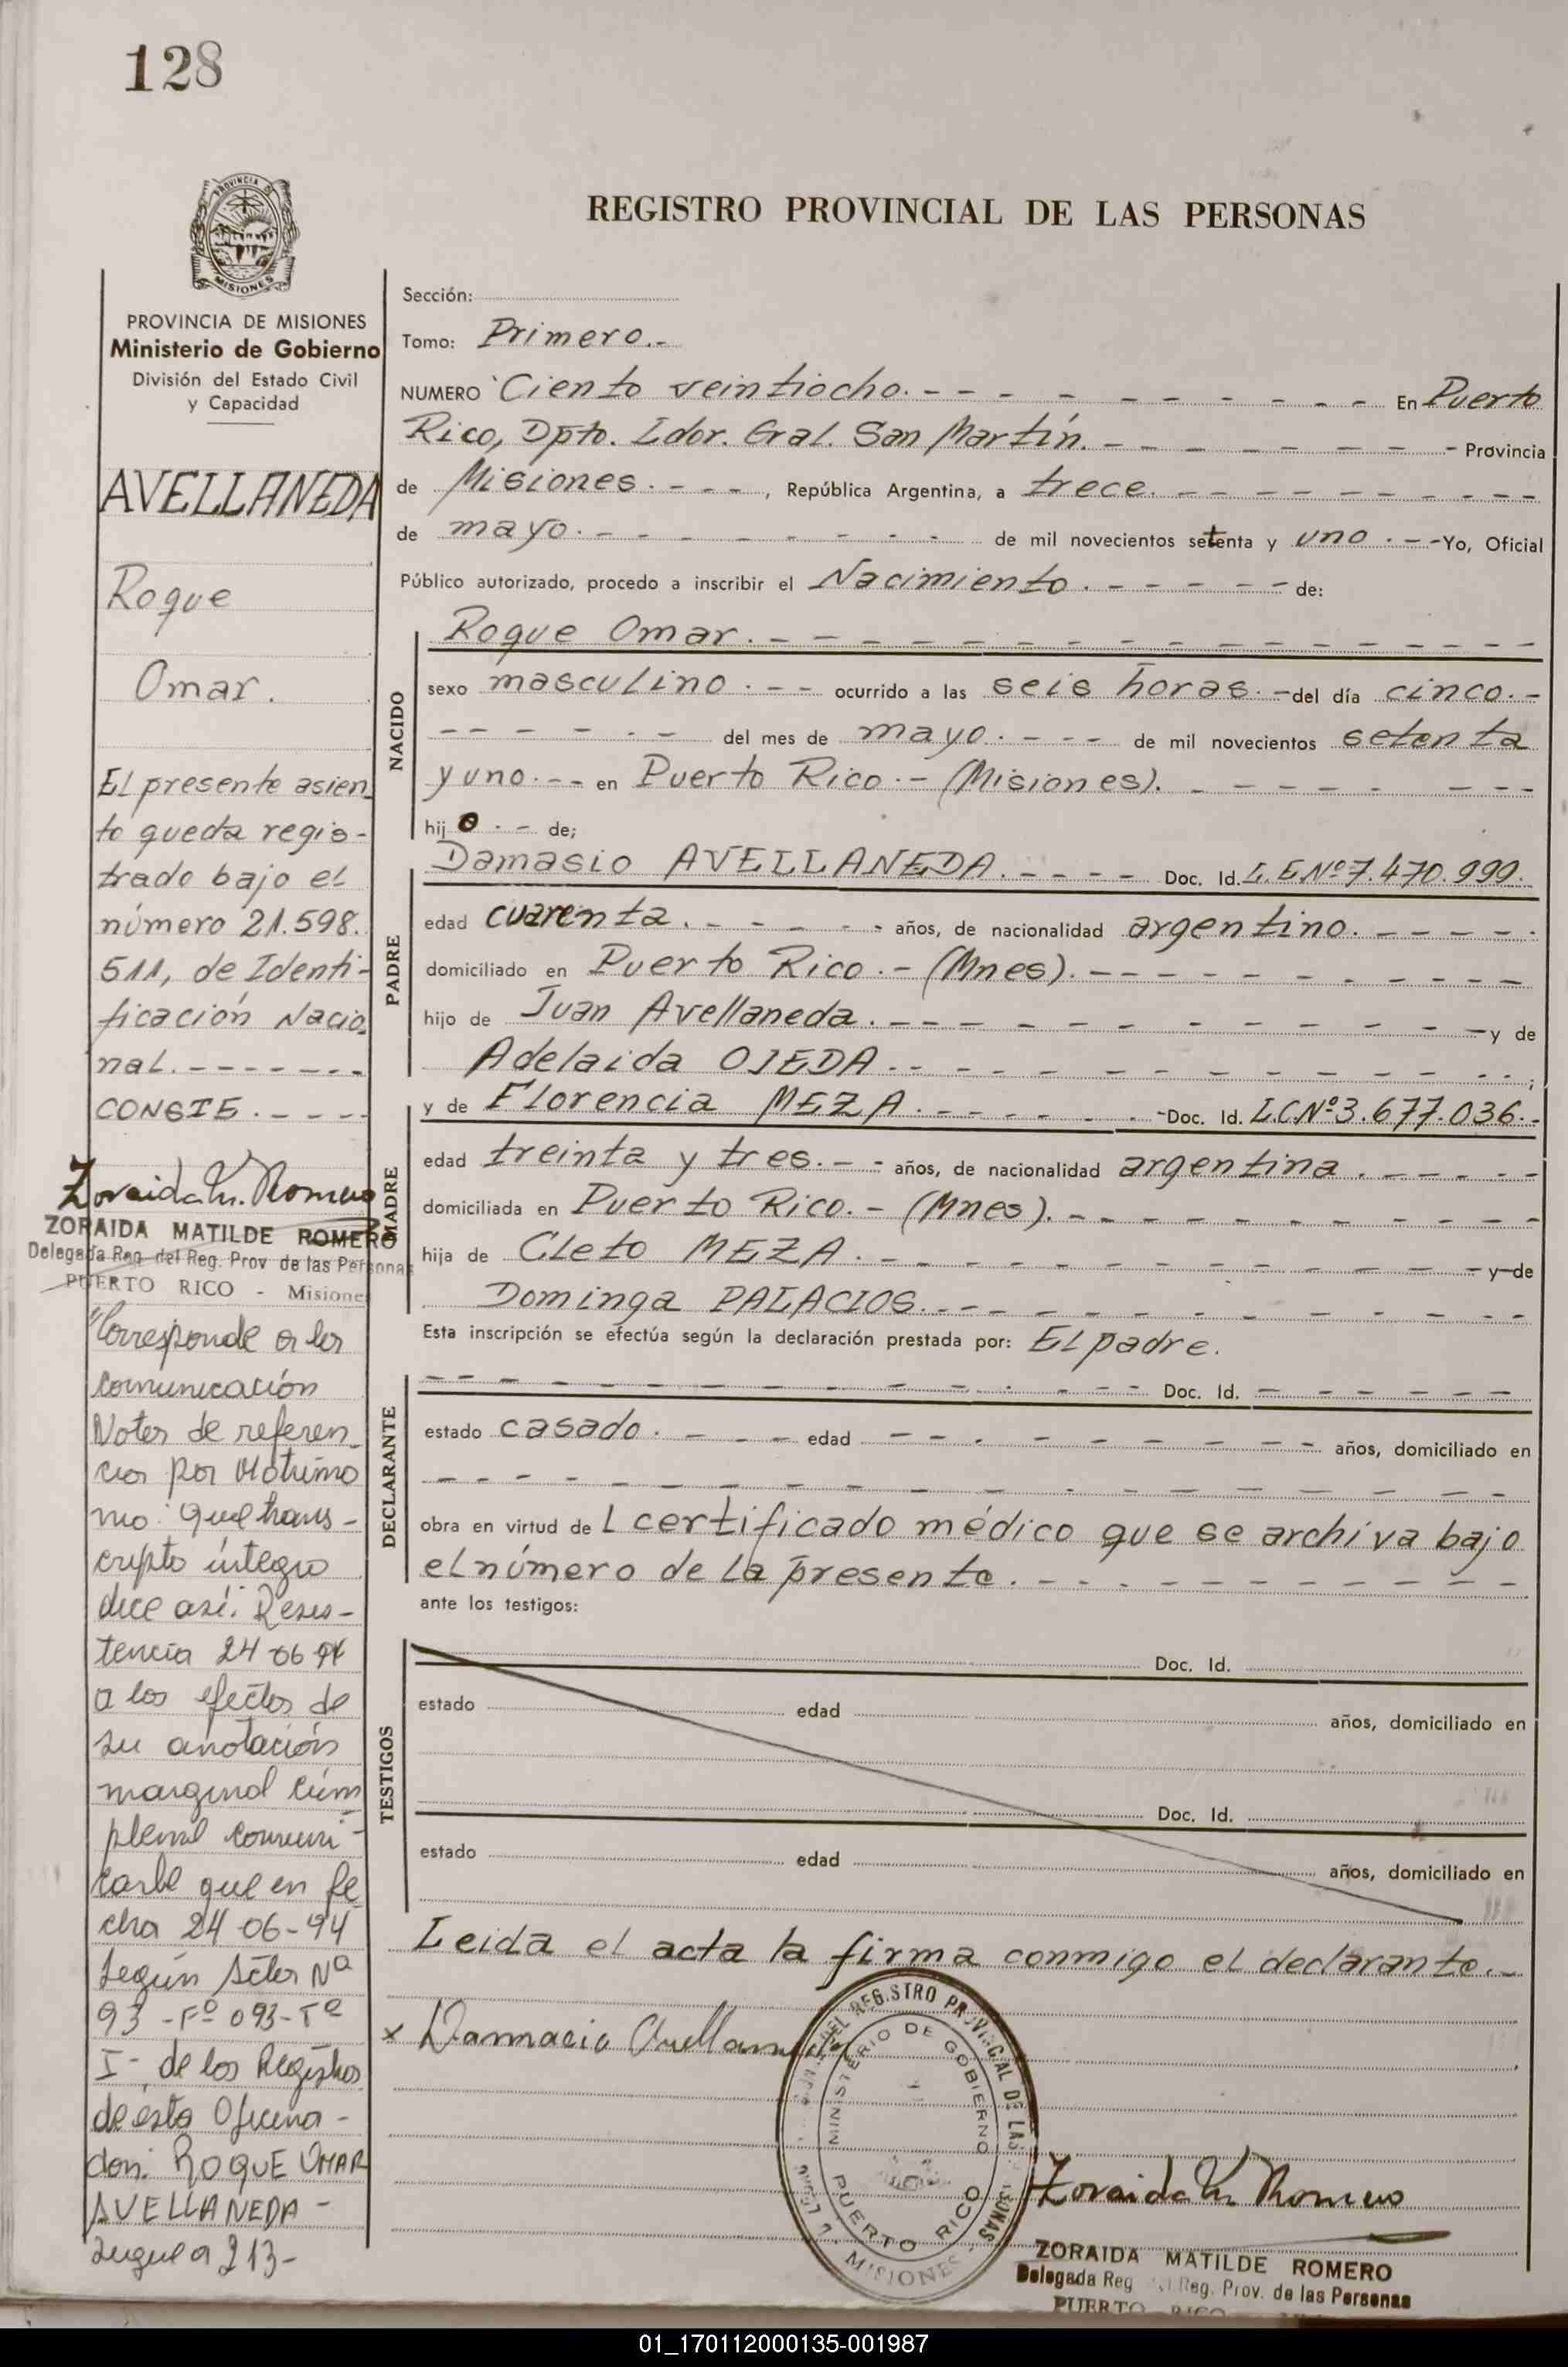 128
PROVINCIA DE
MISIONES
REGISTRO PROVINCIAL DE LAS PERSONAS
PROVINCIA DE MISIONES
Ministerio de Gobierno
División del Estado Civil
y Capacidad
AVELLANEDA
Roque
Omar.
El presente asien
to queda regis-
trado bajo el
número 21.598.
511, de Identi-
ficación Nacio
nal.-------
CONSTE.----
Zoraida M. Romero
ZORAIDA MATILDE ROMERO
Delegada Reg. del Reg. Prov de las Personas
PUERTO RICO - Misiones
"Corresponde a la
comunicación
Nota de referen_
cia por Matrimo
nio: que trans-
cripto íntegro
dice así: Resis-
tencia 24-06-94
a los efectos de
su anotación
marginal cúm
pleme comuni-
carle que en fe
cha 24-06-94
según Acta Nº
93 -Fº 093-Tº
I- de los Registros
de ésta Oficina-
don: ROQUE OMAR
AVELLANEDA-
sigue a 213-
Sección:
Tomo: Primero.-
NUMERO Ciento veintiocho.- - - - - - - - - - En Puerto
Rico, Dpto. Ldor. Gral. San Martín. - - - - - - - - Provincia
de Misiones. - - -, República Argentina, a trece. - - - - - - - - -
de mayo. - - - - - - - - de mil novecientos setenta y uno . - -Yo, Oficial
Público autorizado, procedo a inscribir el Nacimiento. - - - - - de:
NACIDO
Roque Omar. - - - - - - - - - - - - - - -
sexo masculino . - - ocurrido a las seis horas. - del día cinco. -
- - - - - - - del mes de mayo. - - - de mil novecientos setenta
y uno. - - en Puerto Rico. - (Misiones). - - - - - - - - -
hij o . - de;
PADRE
Damasio AVELLANEDA. - - - - Doc. Id. L.E.Nº7.470.999.
edad cuarenta . - - - - - años, de nacionalidad argentino. - - - - -
domiciliado en Puerto Rico. - (Mnes). - - - - - - - - - - -
hijo de Juan Avellaneda . - - - - - - - - - - - y de
Adelaida OJEDA. - - - - - - - - - - - - ;
MADRE
y de Florencia MEZA. - - - - - - Doc. Id. L.C.Nº3.677.036.-
edad treinta y tres. - - años, de nacionalidad argentina . - - - - -
domiciliada en Puerto Rico. - (Mnes). - - - - - - - - - - -
hija de Cleto MEZA. - - - - - - - - - - - - y de
Dominga PALACIOS. - - - - - - - - - - - -
Esta inscripción se efectúa según la declaración prestada por: El padre.
DECLARANTE
- - - - - - - - - - - - - - - Doc. Id. - - - - - -
estado casado . - - - edad - - - - - - - - - - años, domiciliado en
- - - - - - - - - - - - - - - - - - -
obra en virtud de l certificado médico que se archiva bajo
el número de la presente. - - - - - - - - - - -
ante los testigos:
TESTIGOS
Doc. Id.
estado edad años, domiciliado en
Doc. Id.
estado edad años, domiciliado en
Leida el acta la firma conmigo el declarante.-
x Damacio Avellaneda
REGISTRO PROVINCIAL DE LAS PERSONAS
MINISTERIO DE GOBIERNO
PUERTO RICO
MISIONES
Zoraida M. Romero
ZORAIDA MATILDE ROMERO
Delegada Reg. del Reg. Prov. de las Personas
PUERTO RICO
01_170112000135-001987